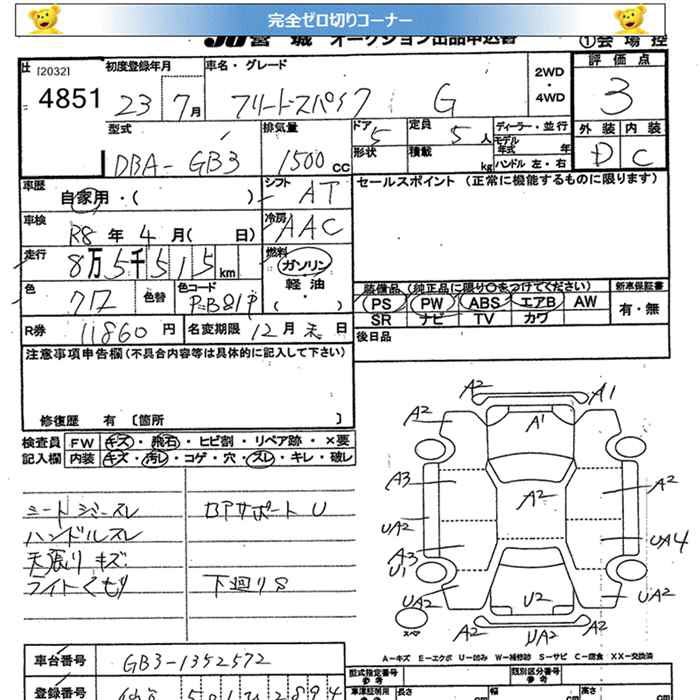 完全ゼロ切りコーナー
JU宮城 オークション出品申込書 ①会場控
[2032]
4851
初度登録年月 23 7月
車名・グレード フリードスパイク G
2WD・4WD
評価点 3
型式 DBA-GB3
排気量 1500cc
ドア 5
形状
定員 5人
積載 kg
ディーラー・並行
モデル年式 年
ハンドル 左・右
外装 D
内装 C
車歴 自家用・( )
シフト AT
セールスポイント (正常に機能するものに限ります)
車検 R8年4月( 日)
冷房 AAC
走行 8万5千515km
燃料 ガソリン・軽油・( )
色 クロ 色替
色コード P-B81P
装備品 (純正品に限り○をつけてください) 新車保証書
PS PW ABS エアB AW 有・無
SR ナビ TV カワ
R券 11860円 名変期限 12月末日
後日品
注意事項申告欄(不具合内容等は具体的に記入して下さい)
修復歴 有 〔箇所 〕
検査員 FW キズ・飛石・ヒビ割・リペア跡・×要
記入欄 内装 キズ・汚レ・コゲ・穴・スレ・キレ・破レ
シートシミスレ BPサポートU
ハンドルスレ
天張りキズ
ライトくもり 下廻りS
A2 A1
A2 A1 A2
A3 A2 A2
UA2 UA4
A3
U1
UA2 U2 UA2
A2 UA2 A2
スペア
A-キズ E-エクボ U-凹み W-補修跡 S-サビ C-腐食 XX-交換済
車台番号 GB3-1352572
型式指定番号 参考
類別区分番号 参考
登録番号
長さ cm 幅 cm 高さ cm